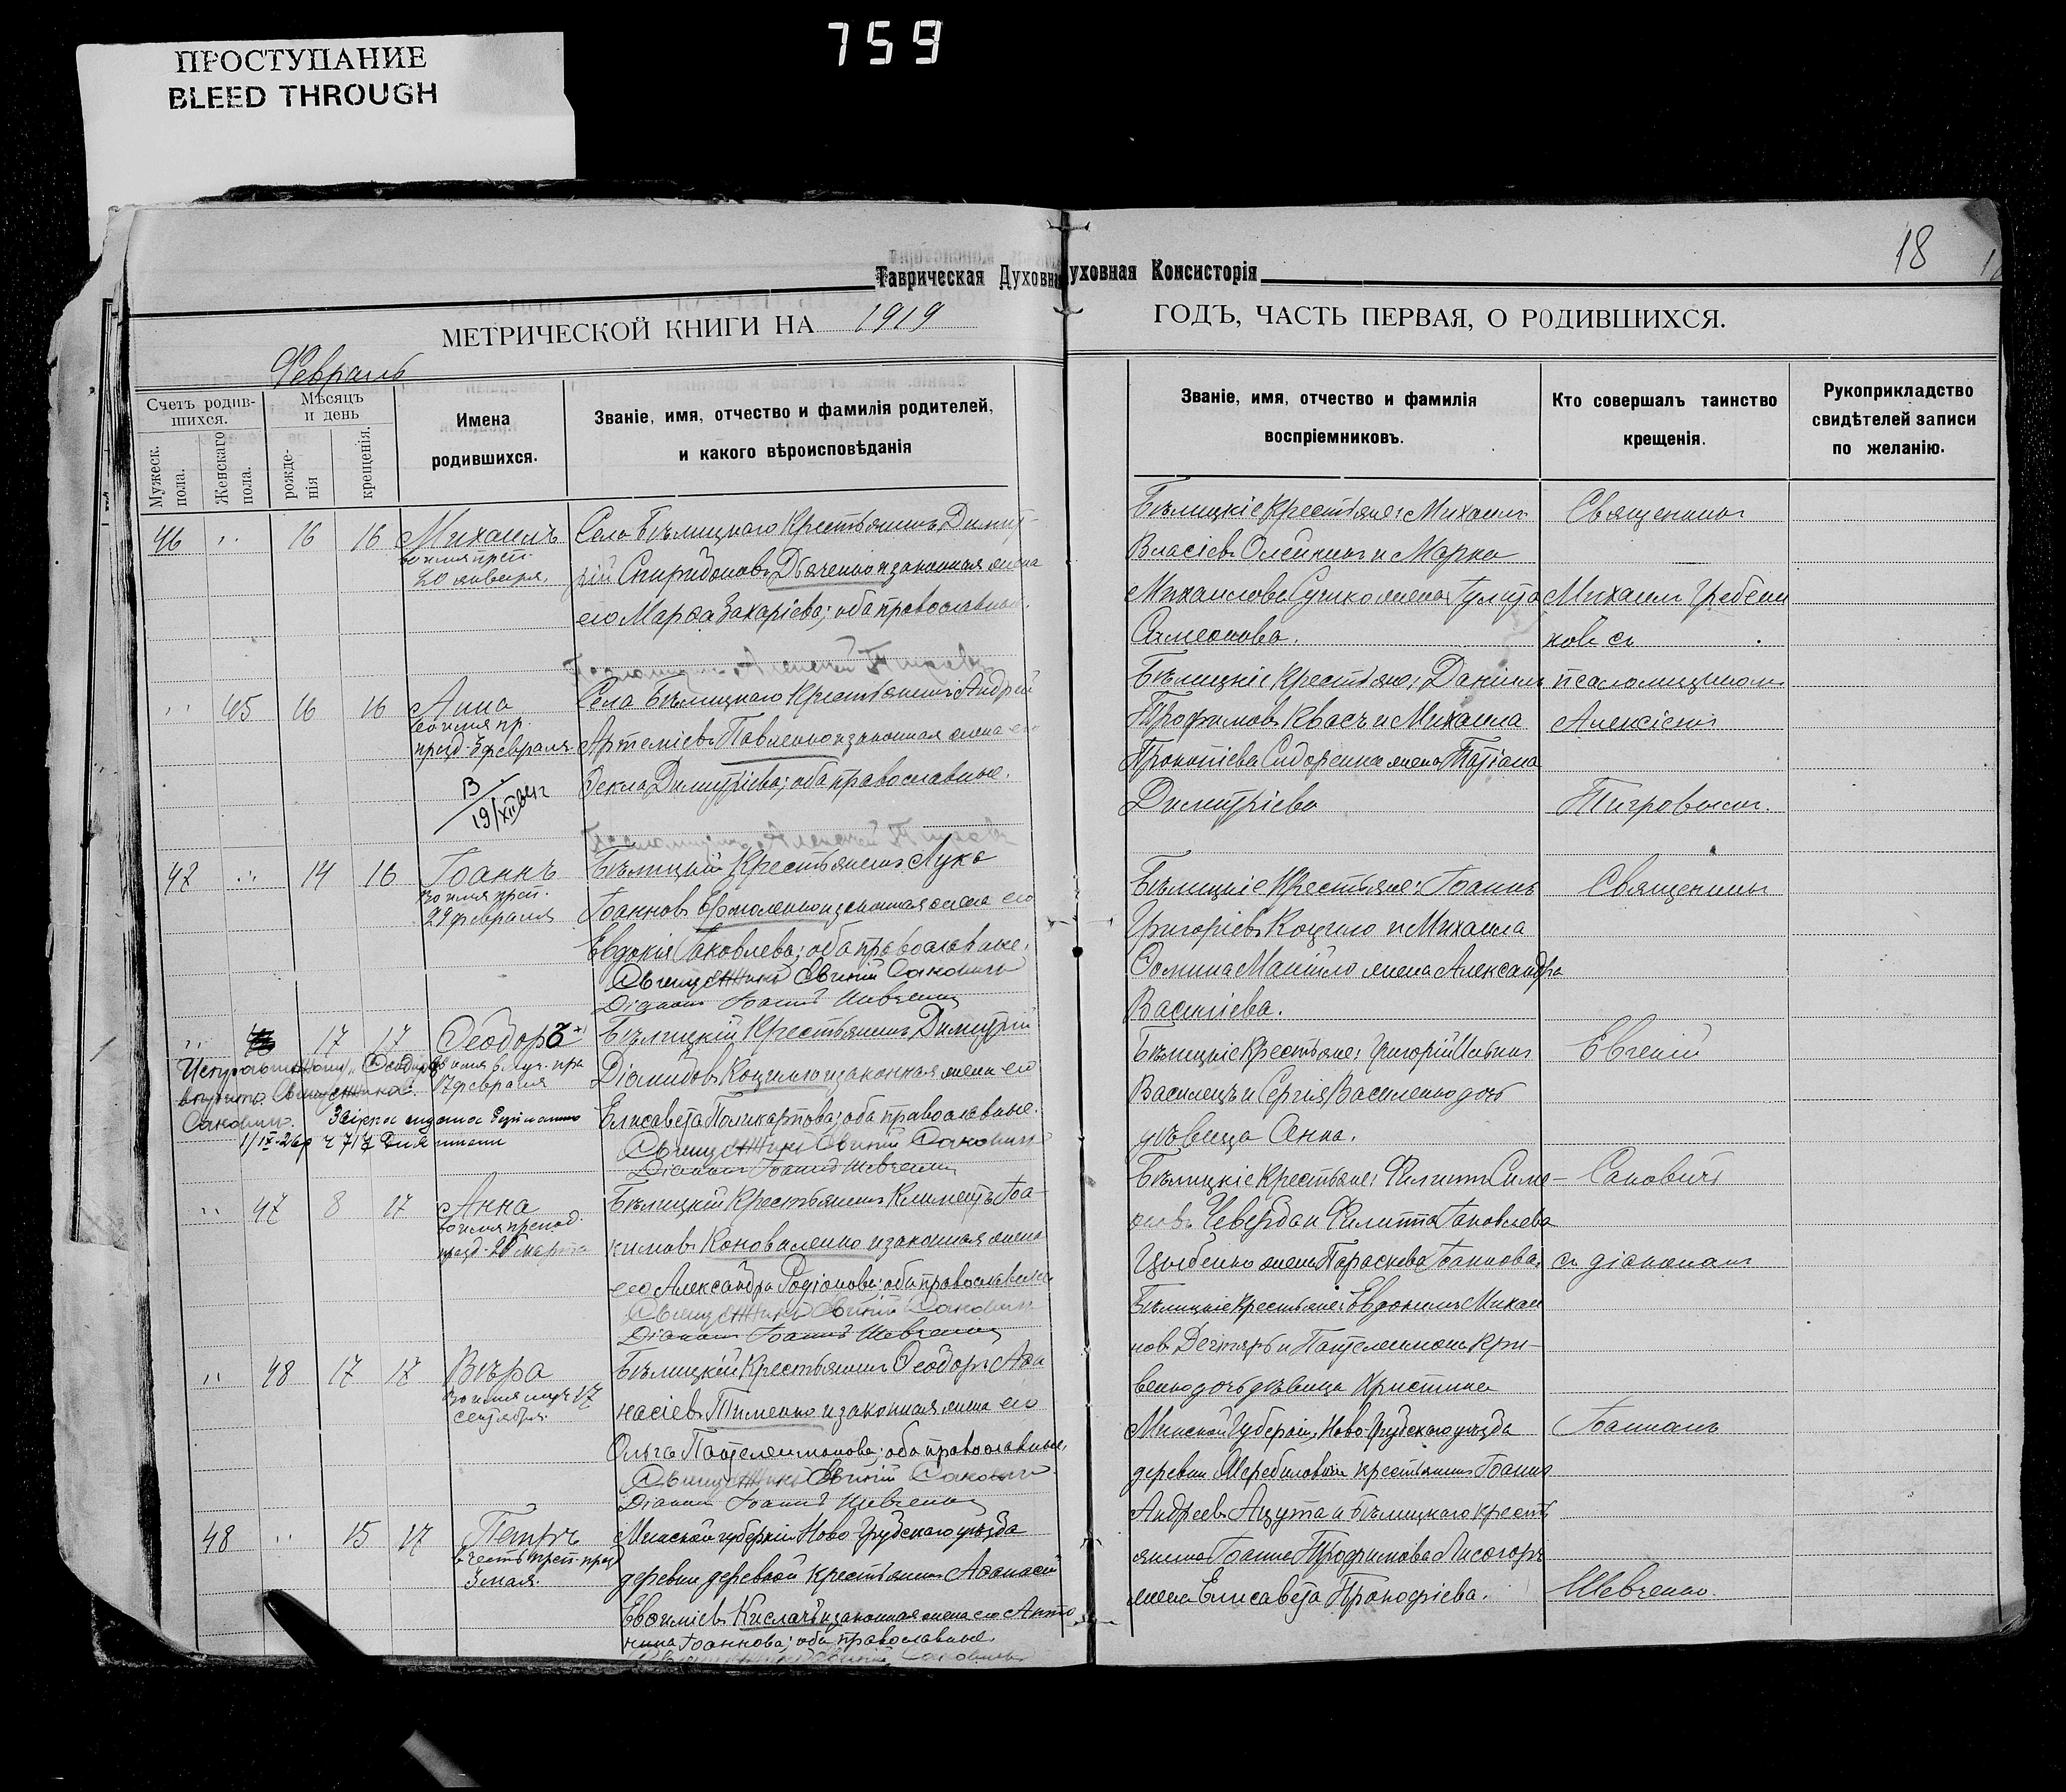 759
ПРОСТУПАНИЕ
BLEED THROUGH
18
Таврическая Духовная
Духовная Консисторія
МЕТРИЧЕСКОЙ КНИГИ НА 1919
ГОДЪ, ЧАСТЬ ПЕРВАЯ, О РОДИВШИХСЯ.
Февраль
Счетъ родив-
шихся.
Мужеск.
пола.
Женскаго
пола.
Мѣсяцъ
и день
рожде-
нія
крещенія.
Имена
родившихся.
Званіе, имя, отчество и фамилія родителей,
и какого вѣроисповѣданія
Званіе, имя, отчество и фамилія
воспріемниковъ.
Кто совершалъ таинство
крещенія.
Рукоприкладство
свидѣтелей записи
по желанію.
46 16 16 Михаилъ
Села Бѣлицкаго Крестьянинъ Димит-
рій Спиридоновъ Дьяченко и законная жена
его Марѳа Захаріева; оба православные.
Бѣлицкіе Крестьяне: Михаилъ
Власіевъ Олейникъ и Марка
Михаилова Сушко жена
Симеонова.
Священникъ
Михаилъ Гребени
ковъ съ
псаломщикомъ
Алексіемъ
Тигровымъ.
45 16 16 Анна
во имя пр.
празд. 3 февраля.
В
19/XII
Села Бѣлицкаго Крестьянинъ Андрей
Артеміевъ Павленко и законная жена его
Ѳекла Димитріева; оба православные.
Бѣлицкіе Крестьяне: Даніилъ
Трофимовъ Квасъ и Михаила
Прокопіева Сидоренка жена Татіана
Димитріева
47 14 16 Іоаннъ
во имя преп.
29 февраля
Бѣлицкій Крестьянинъ Лука
Іоанновъ Ермоленко и законная жена его
Евдокія Іаковлева; оба православные.
Священникъ Евгеній Саковичъ
Діаконъ Іоаннъ Шевченко
Бѣлицкіе Крестьяне: Іоаннъ
Григоріевъ Коцило и Михаила
Ѳомина Мануйло жена Александра
Василіева.
Священникъ
Евгеній
Саковичъ
съ діакономъ
Іоанномъ
Шевченко.
17 17 Ѳеодоръ
17 февраля
Саковичъ.
Бѣлицкій Крестьянинъ Димитрій
Діомидовъ Коцило и законная жена его
Елисавета Поликарпова; оба православные.
Священникъ Евгеній Саковичъ
Діаконъ Іоаннъ Шевченко
Бѣлицкіе Крестьяне: Григорій
Василецъ и Сергія Василенко дочь
дѣвица Анна.
47 8 17 Анна
празд. 26 марта
Бѣлицкій Крестьянинъ Климентъ Іоа-
кимовъ Коноваленко и законная жена
его Александра Родіонова; оба православные
Священникъ Евгеній Саковичъ
Діаконъ Іоаннъ Шевченко
Бѣлицкіе Крестьяне: Филиппъ Симе-
оновъ и Филиппа Іаковлева
Цыбенко жена Параскева Іоаннова.
48 17 17 Вѣра
во имя муч. 17
сентября.
Бѣлицкій Крестьянинъ Ѳеодоръ Аѳа
насіевъ Тименко и законная жена его
Ольга Пантелеимонова; оба православные.
Священникъ Евгеній Саковичъ
Діаконъ Іоаннъ Шевченко
Бѣлицкіе Крестьяне: Евдокимъ Михаи
ловъ Дегтярь и Пантелеимона Кри-
венко дочь дѣвица Христина
48 15 17 Петръ
3 мая.
Минской губерніи Ново-Грудскаго уѣзда
деревни деревной крестьянинъ Аѳанасій
Евѳиміевъ Кислачъ и законная жена его Анто
нина Іоаннова; оба православные.
Минской Губерніи, Ново-Грудскаго уѣзда
деревни крестьянинъ Іоаннъ
Андреевъ Ацута и Бѣлицкаго кресть
янина Іоанна Трофимова Лисогоръ
жена Елисавета Прокофіева.